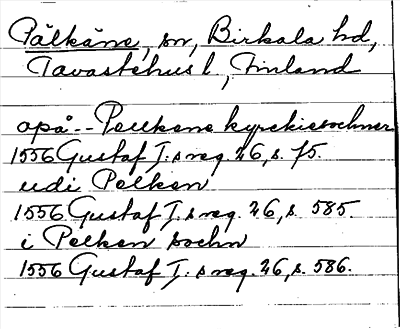 Pälkäne, sn, Birkala hd,
Tavastehus l, Finland
opå -- Peukene kyrckiesochner
1556 Gustaf I:s reg. 26, s. 75.
udi Pelken
1556 Gustaf I:s reg. 26, s. 585.
i Pelken sochn
1556 Gustaf I:s reg. 26, s. 586.